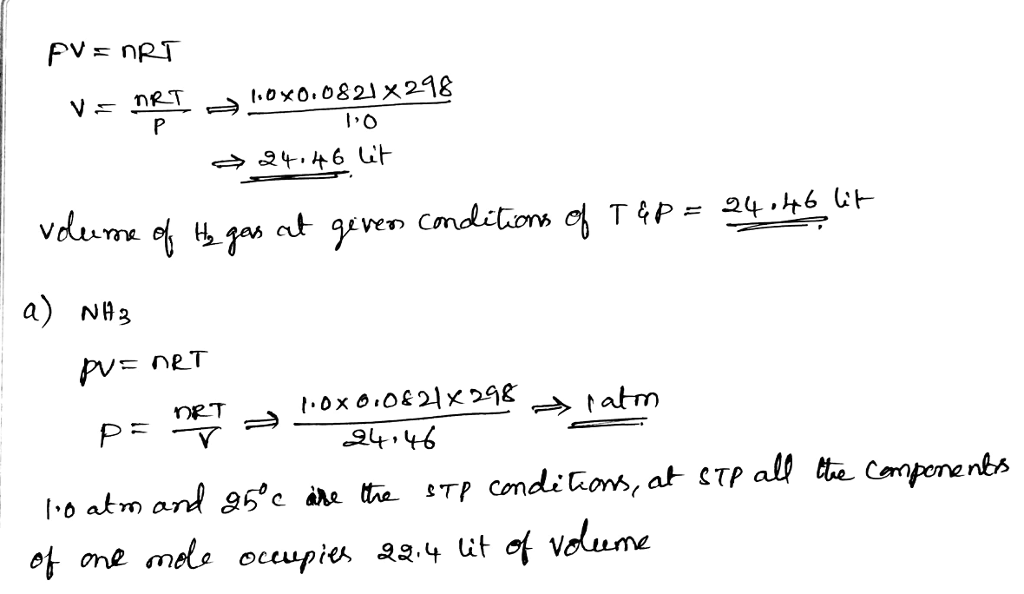 PV = nRT
V = nRT/P ⇒ 1.0×0.0821×298/1.0
⇒ 24.46 lit
volume of H₂ gas at given conditions of T & P = 24.46 lit
a) NH₃
PV = nRT
P = nRT/V ⇒ 1.0×0.0821×298/24.46 ⇒ 1 atm
1.0 atm and 25°C are the STP conditions, at STP all the components
of one mole occupies 22.4 lit of volume